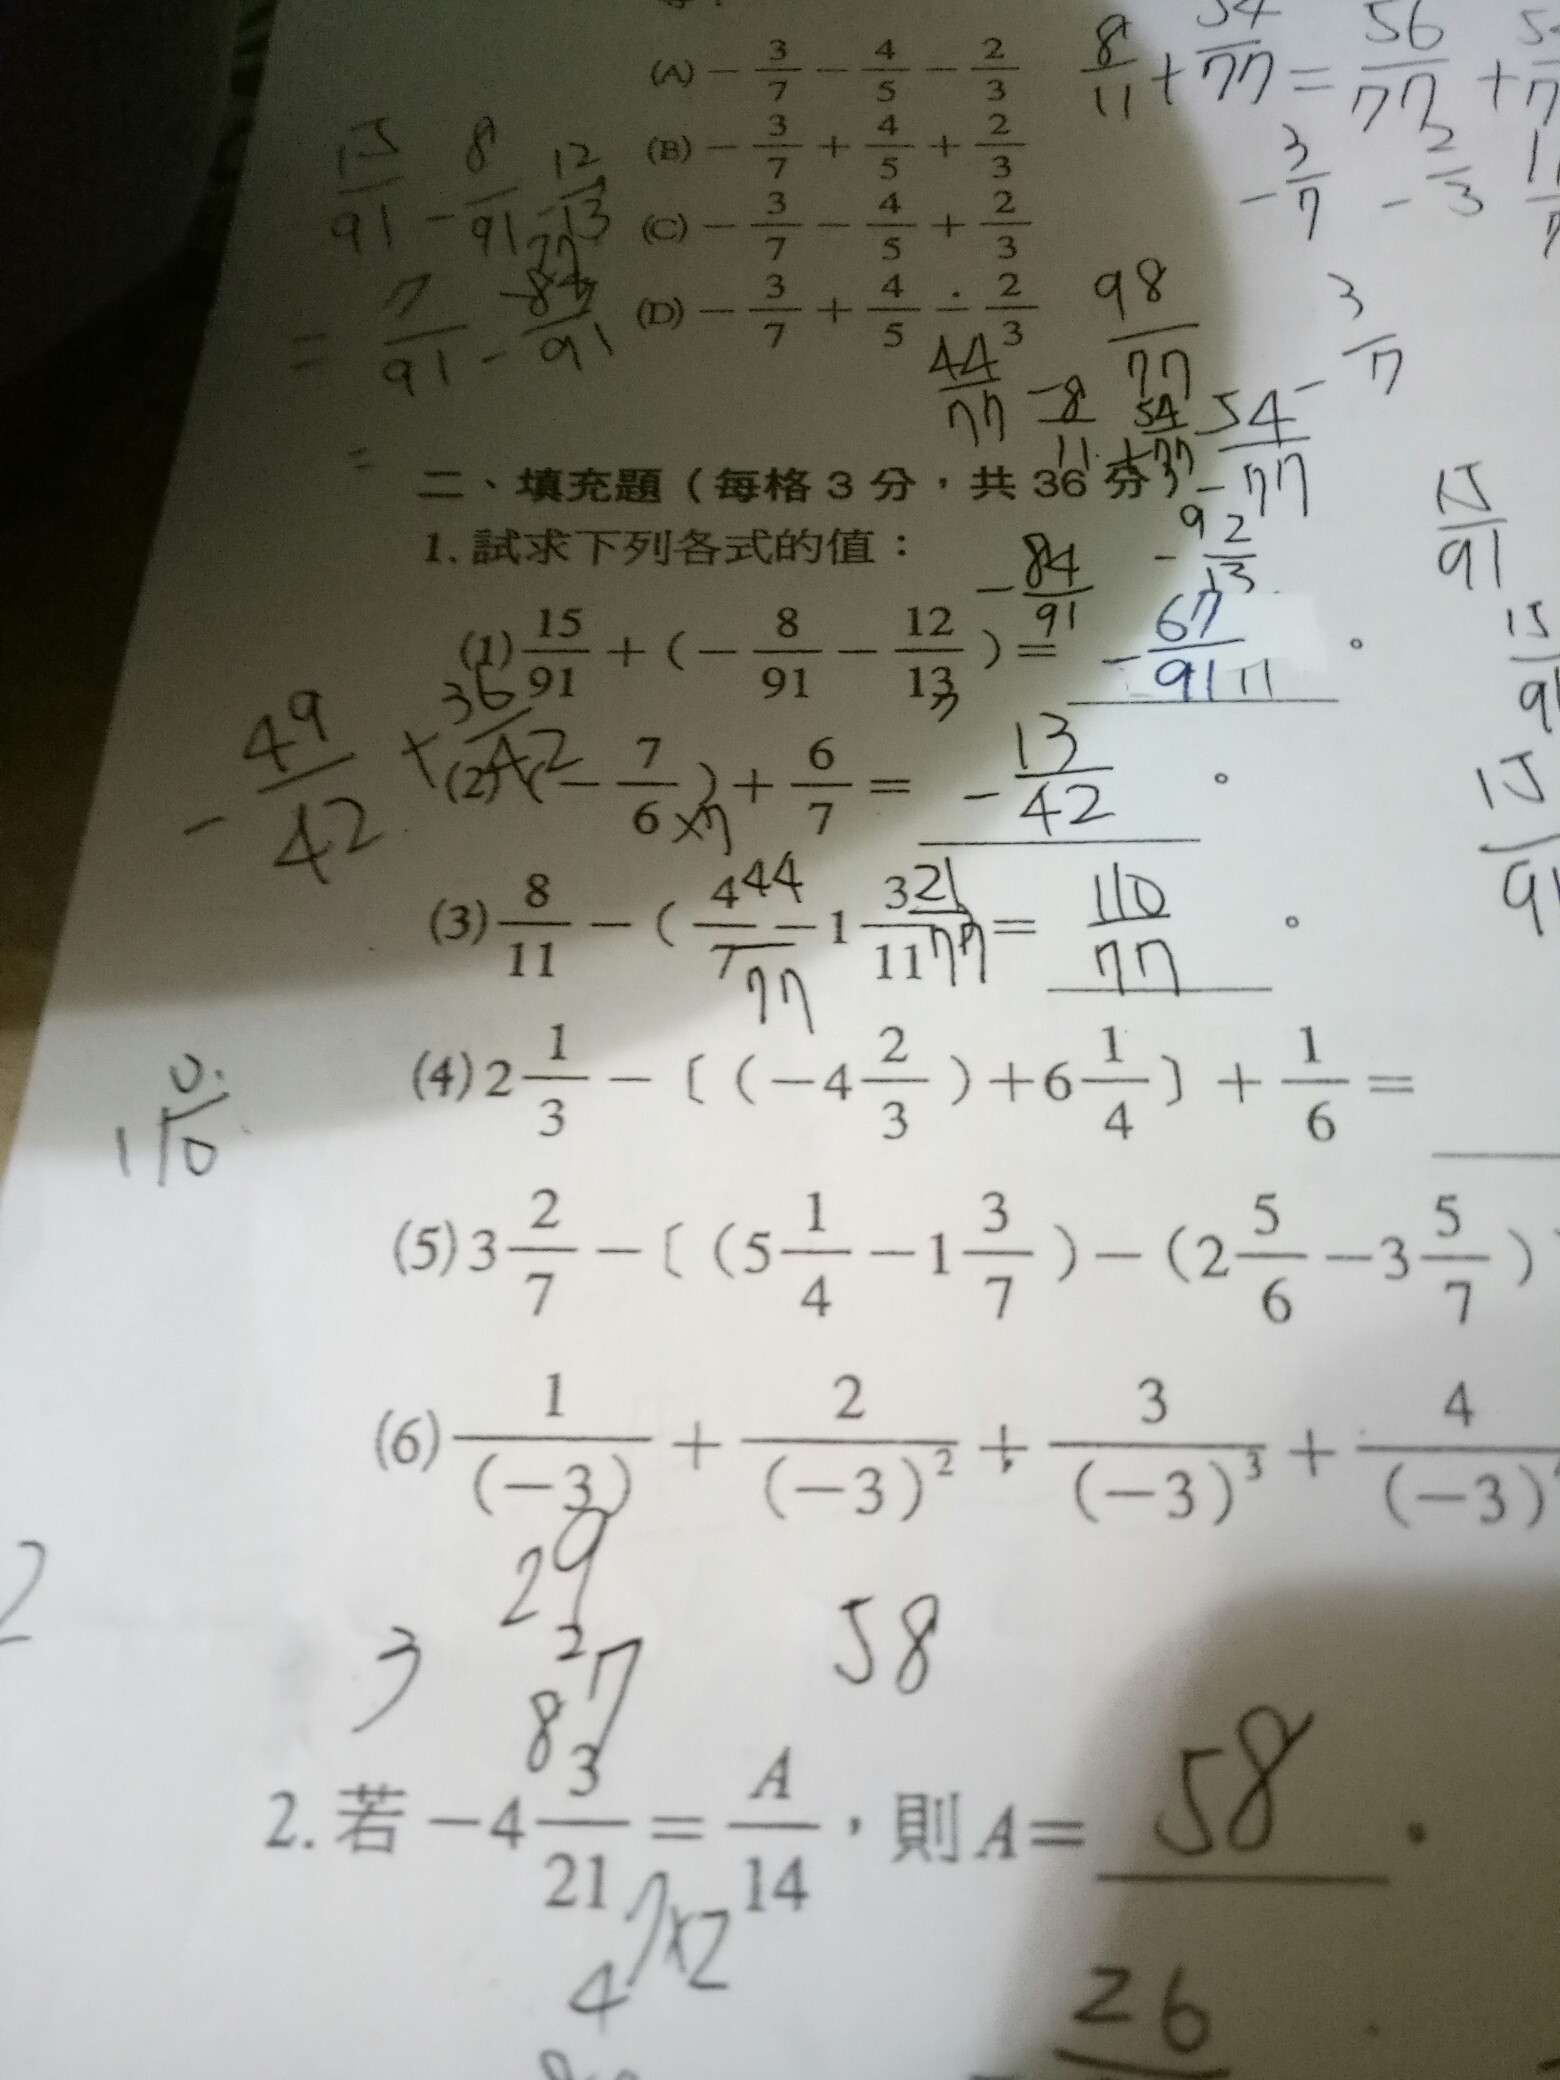 (A) −3/7 − 4/5 − 2/3
(B) −3/7 + 4/5 + 2/3
(C) −3/7 − 4/5 + 2/3
(D) −3/7 + 4/5 − 2/3
8/11 + 54/77 = 56/77 +
−3/7 − 2/3
15/91 − 8/91 − 12/13
= 7/91 − 84/91
=
98/77
3/7
44/77
−8/11 + 54/77
54/77
二、填充題（每格3分，共36分）
1. 試求下列各式的值：
−84/91
15/91
(1) 15/91 + (−8/91 − 12/13) = −67/91。
−49/42 + 36/42
(2) (−7/6) + 6/7 = −13/42。
×7
(3) 8/11 − (4/7 − 1 3/11 = 110/77。
44/77
21/77
(4) 2 1/3 − 〔(−4 2/3) + 6 1/4〕 + 1/6 =
(5) 3 2/7 − 〔(5 1/4 − 1 3/7) − (2 5/6 − 3 5/7)
(6) 1/(−3) + 2/(−3)² + 3/(−3)³ + 4/(−3)
29
3
87
58
2. 若 −4 3/21 = A/14，則 A = 58．
7×2
4
26